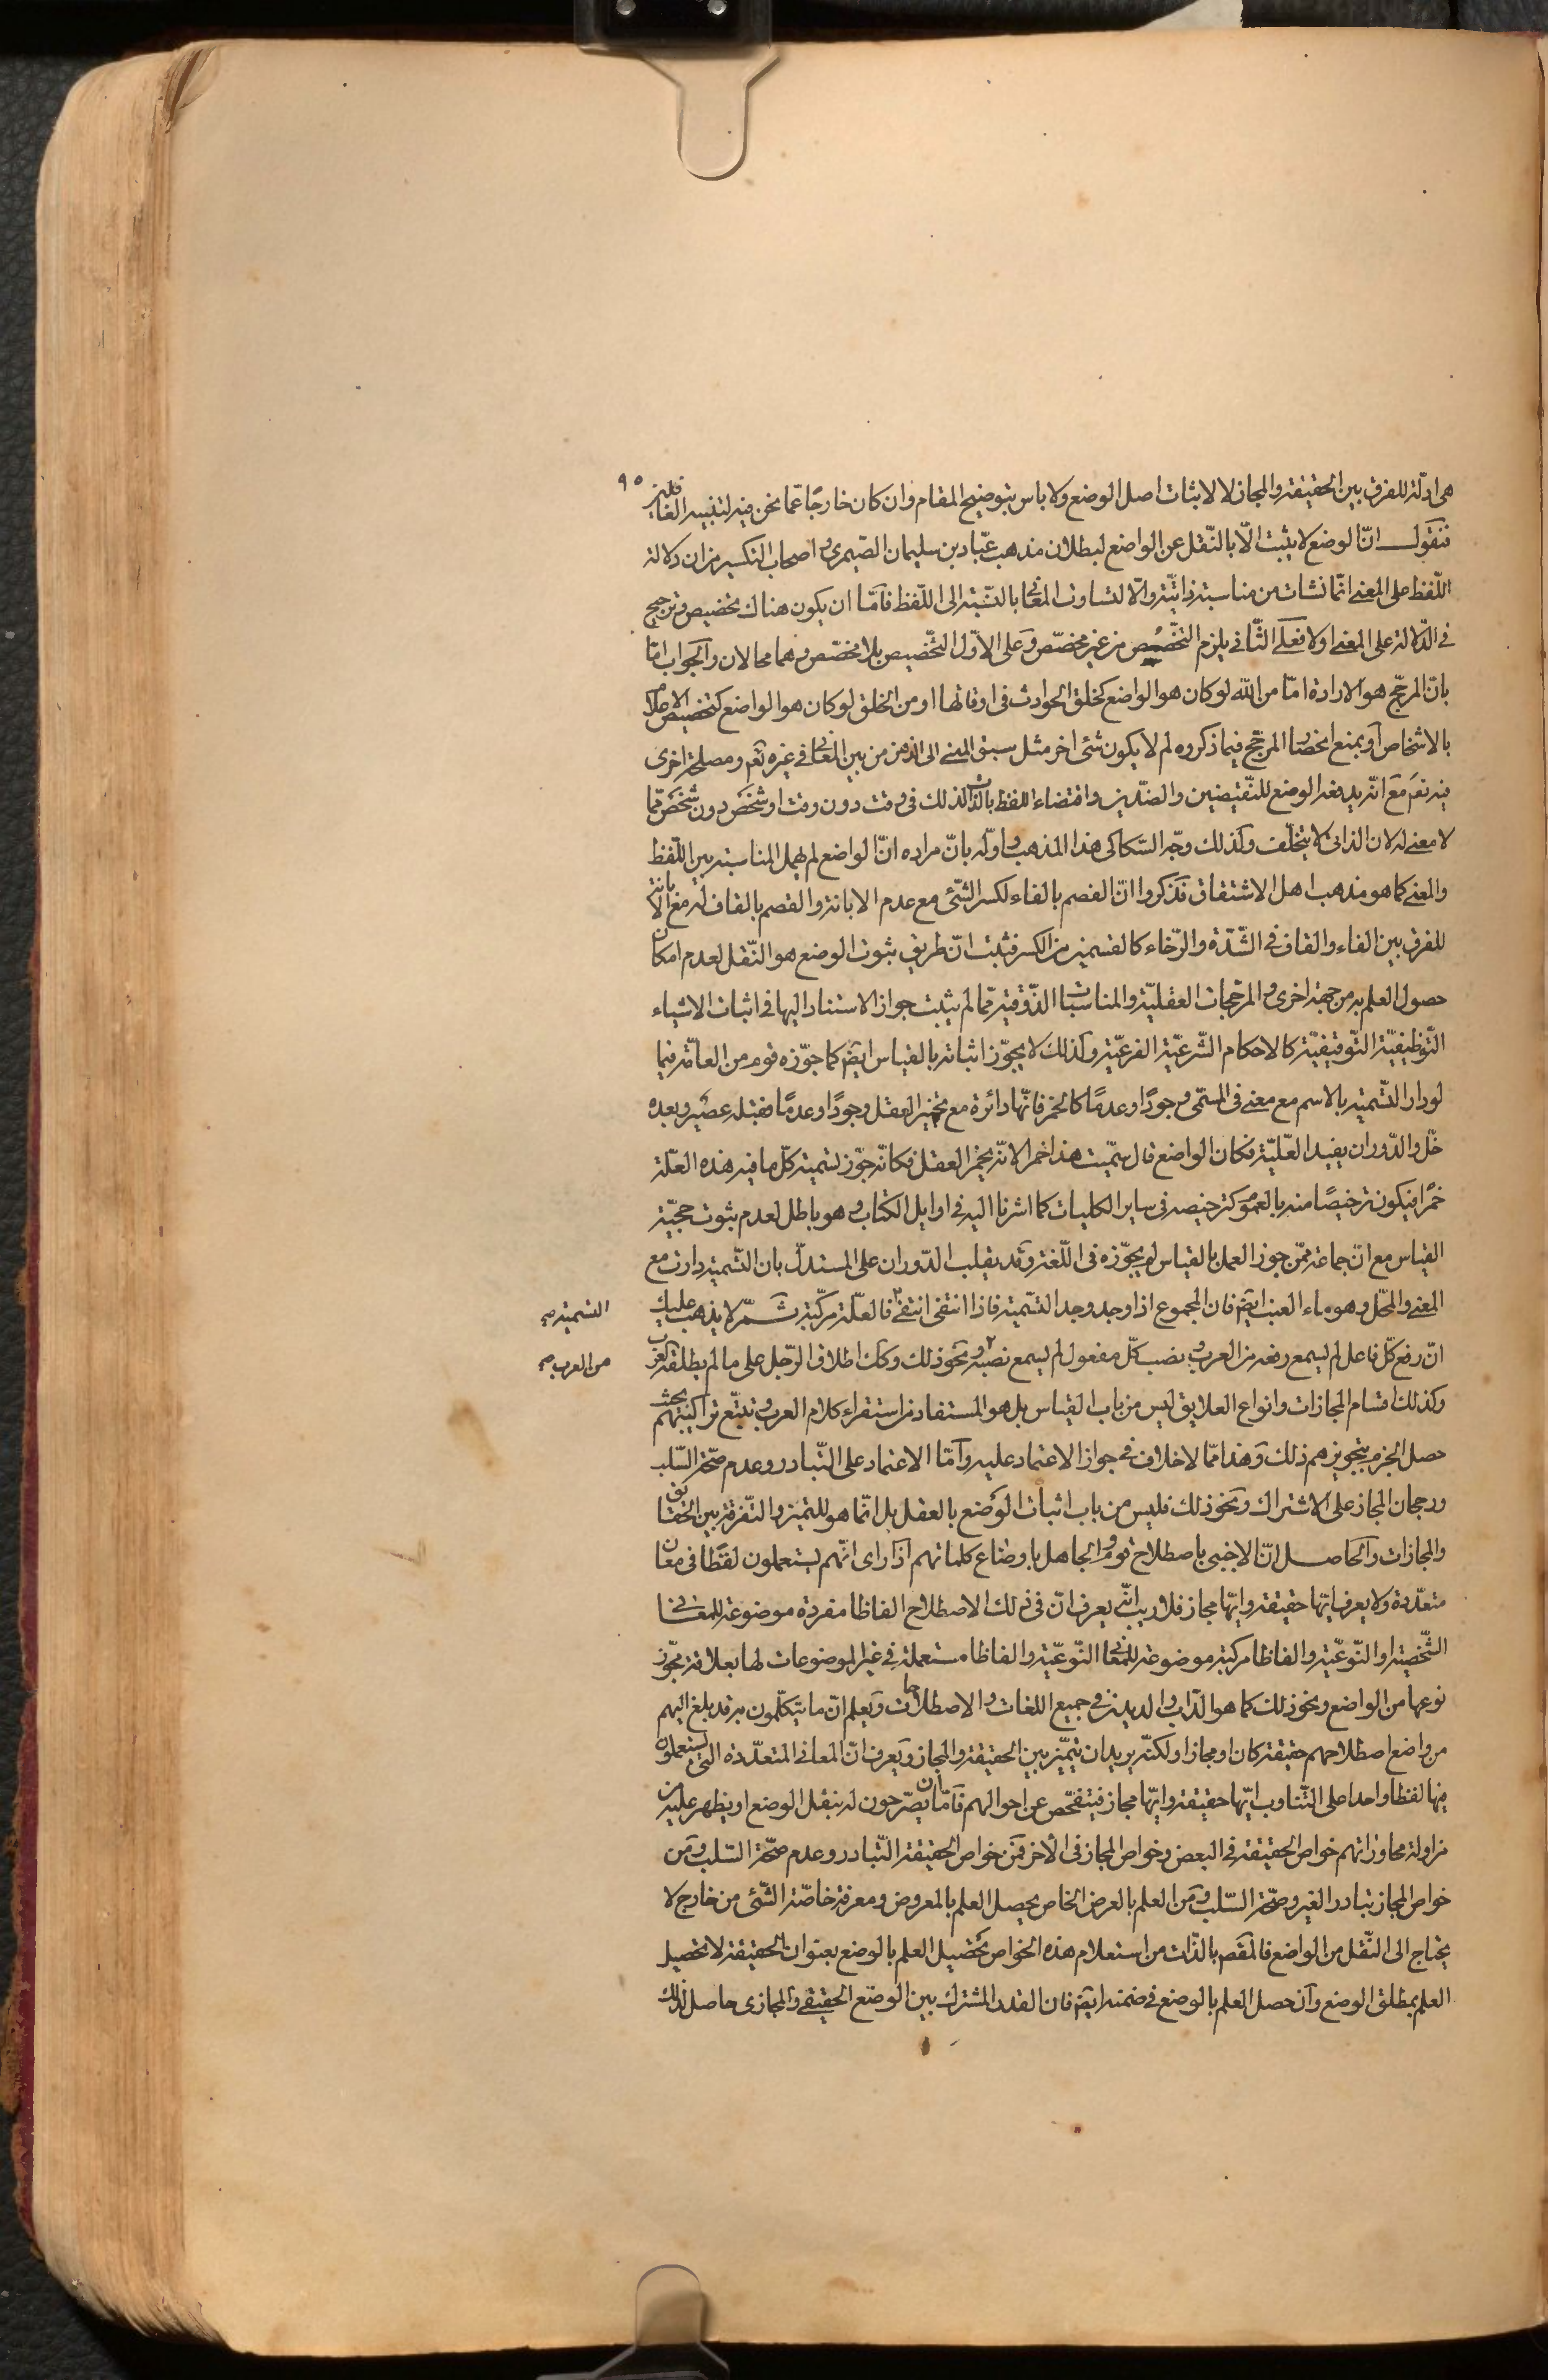 ٩٥
هى ادلّة للفرق بين الحقيقة والمجاز لا لاثبات اصل الوضع ولا باس بتوضيح المقام وان كان خارجًا عمّا نحن فيه لتنبيه الغافلين
فنقول انّ الوضع لا يثبت الّا بالنّقل عن الواضع لبطلان مذهب عبّاد بن سليمان الصّيمرى و اصحاب التكسير من ان دلالة
اللّفظ على المعنى انّما نشات من مناسبة ذاتيّة والّا لتساوت المعانى بالنّسبة الى اللّفظ فامّا ان يكون هناك تخصيص وترجيح
فى الدّلالة على المعنى اولا فعلى الثّانى يلزم التخصّيص من غير مخصّص وعلى الاوّل التخّصيص بلا مخصّص وهما محالان والجواب امّا
بانّ المرجّح هو الارادة امّا من اللّه لو كان هو الواضع كخلق الحوادث فى اوقاتها او من الخلق لو كان هو الواضع كتخصيص الاعلام
بالاشخاص او بمنع انحصار المرجّح فيما ذكروه لم لا يكون شئ اخر مثل سبق المعنى الى الذهن من بين المعانى فى غيره تعم ومصلحة اخرى
فيه تعم مع انّه يدفعه الوضع للنّقيضين والضدّين واقتضاء اللفظ بالذّات لذلك فى وقت دون وقت او شخص دون شخص ممّا
لا معنى له لان الذاتى لا يتخلّف وكذلك وجّه السّكاكى هذا المذهب و اوّله بانّ مراده انّ الواضع لم يهمل المناسبة بين اللّفظ
والمعنى كما هو مذهب اهل الاشتقاق فذكروا انّ الفصم بالفاء لكسر الشّئ مع عدم الابانة والقصم بالقاف له مع الابانة
للفرق بين الفاء والقاف فى الشّدّة والرّخاء كالقسمين من الكسر فثبت انّ طريق ثبوت الوضع هو النّقل لعدم امكان
حصول العلم به من جهة اخرى و المرجّحات العقليّة والمناسبات الذّوقية ممّا لم يثبت جواز الاستناد اليها فى اثبات الاشياء
التّوظيفيّة التّوقيفيّة كالاحكام الشّرعيّة الفرعيّة وكذلك لا يجوّز اثباته بالقياس ايضم كما جوّزه قوم من العامّة فيما
لو دار التّسمية بالاسم مع معنى فى المسّمى وجودًا وعدمًا كالخمر فانّها دائرة مع تخمير العقل وجودًا وعدمًا فقبله عصير وبعده
خلّ والدّوران يفيد العلّيّة فكان الواضع قال سمّيت هذا خمرا لانّه يخمر العقل فكانّه جوّز تسمية كلّ ما فيه هذه العلّة
خمرًا فيكون ترخيصًا منه بالعموم كترخيصه فى ساير الكليات كما اشرنا اليه فى اوايل الكتاب و هو باطل لعدم ثبوت حجيّة
القياس مع انّ جماعة ممّن جوز العمل بالقياس لم يجوّزه فى اللّغة وقد يقلب الدّوران على المستدلّ بان التّسمية دارت مع
المعنى والمحّل وهو ماء العنب ايضم فان المجموع اذا وجد وجد التسّمية فاذا انتفى انتفى فالعلّة مركّبة ثمّ لا يذهب عليك
التسمية صح
انّ رفع كلّ فاعل لم يسمع رفعه من العرب و نصب كلّ مفعول لم يسمع نصبه و نحو ذلك وكك اطلاق الرّجل على ما لم يطلقه العرب
من العرب صح
وكذلك اقسام المجازات وانواع العلايق ليس من باب القياس بل هو المستفاد من استقراء كلام العرب و تتبّع تراكيبهم بحيث
حصل الجزم بتجويزهم ذلك وهذا ممّا لا خلاف فى جواز الاعتماد عليه وامّا الاعتماد على التّبادر وعدم صحّة السّلب
ورجحان المجاز على الاشتراك ونحو ذلك فليس من باب اثبات الوضع بالعقل بل انّما هو للتميز والتّفرقة بين الحقايق
والمجازات والحاصل انّ الاجنبى باصطلاح قوم و الجاهل باوضاع كلماتهم اذا راى انّهم يستعملون لفظًا فى معان
متعدّدة ولا يعرف ايّها حقيقة وايّها مجاز فلا ريب انّه يعرف انّ فى ذلك الاصطلاح الفاظا مفردة موضوعة للمعانى
الشّخصيّة او النّوعيّة والفاظا مركبة موضوعة للمعانى النّوعيّة والفاظا مستعملة فى غير الموضوعات لها بعلاقة مجوّز
نوعها من الواضع ونحو ذلك كما هو الدّاب والديدن فى جميع اللغات والاصطلاحات ويعلم انّ ما يتكلّمون به قد بلغ اليهم
من واضع اصطلاحهم حقيقة كان او مجازا ولكنّه يريد ان يتميّز بين الحقيقة والمجاز ويعرف انّ المعانى المتعدّدة التى يستعملون
فيها لفظا واحدا على التّناوب ايّها حقيقة وايّها مجاز فيتفحّص عن احوالهم فامّا ان يصّرحون له بنقل الوضع او يظهر عليه من
مزاولة محاوراتهم خواص الحقيقة فى البعض وخواص المجاز فى الاخر فمن خواص الحقيقة التّبادر وعدم صحّة السّلب ومن
خواص المجاز تبادر الغير وصحّة السّلب ومن العلم بالعرض الخاص يحصل العلم بالمعروض ومعرفة خاصّة الشّئ من خارج لا
يحتاج الى النّقل من الواضع فالمقصم بالذّات من استعلام هذه الخواص تحصيل العلم بالوضع بعنوان الحقيقة لا تحصيل
العلم بمطلق الوضع وان حصل العلم بالوضع فى ضمنه ايضم فان القدر المشترك بين الوضع الحقيقى والمجازى حاصل لذلك